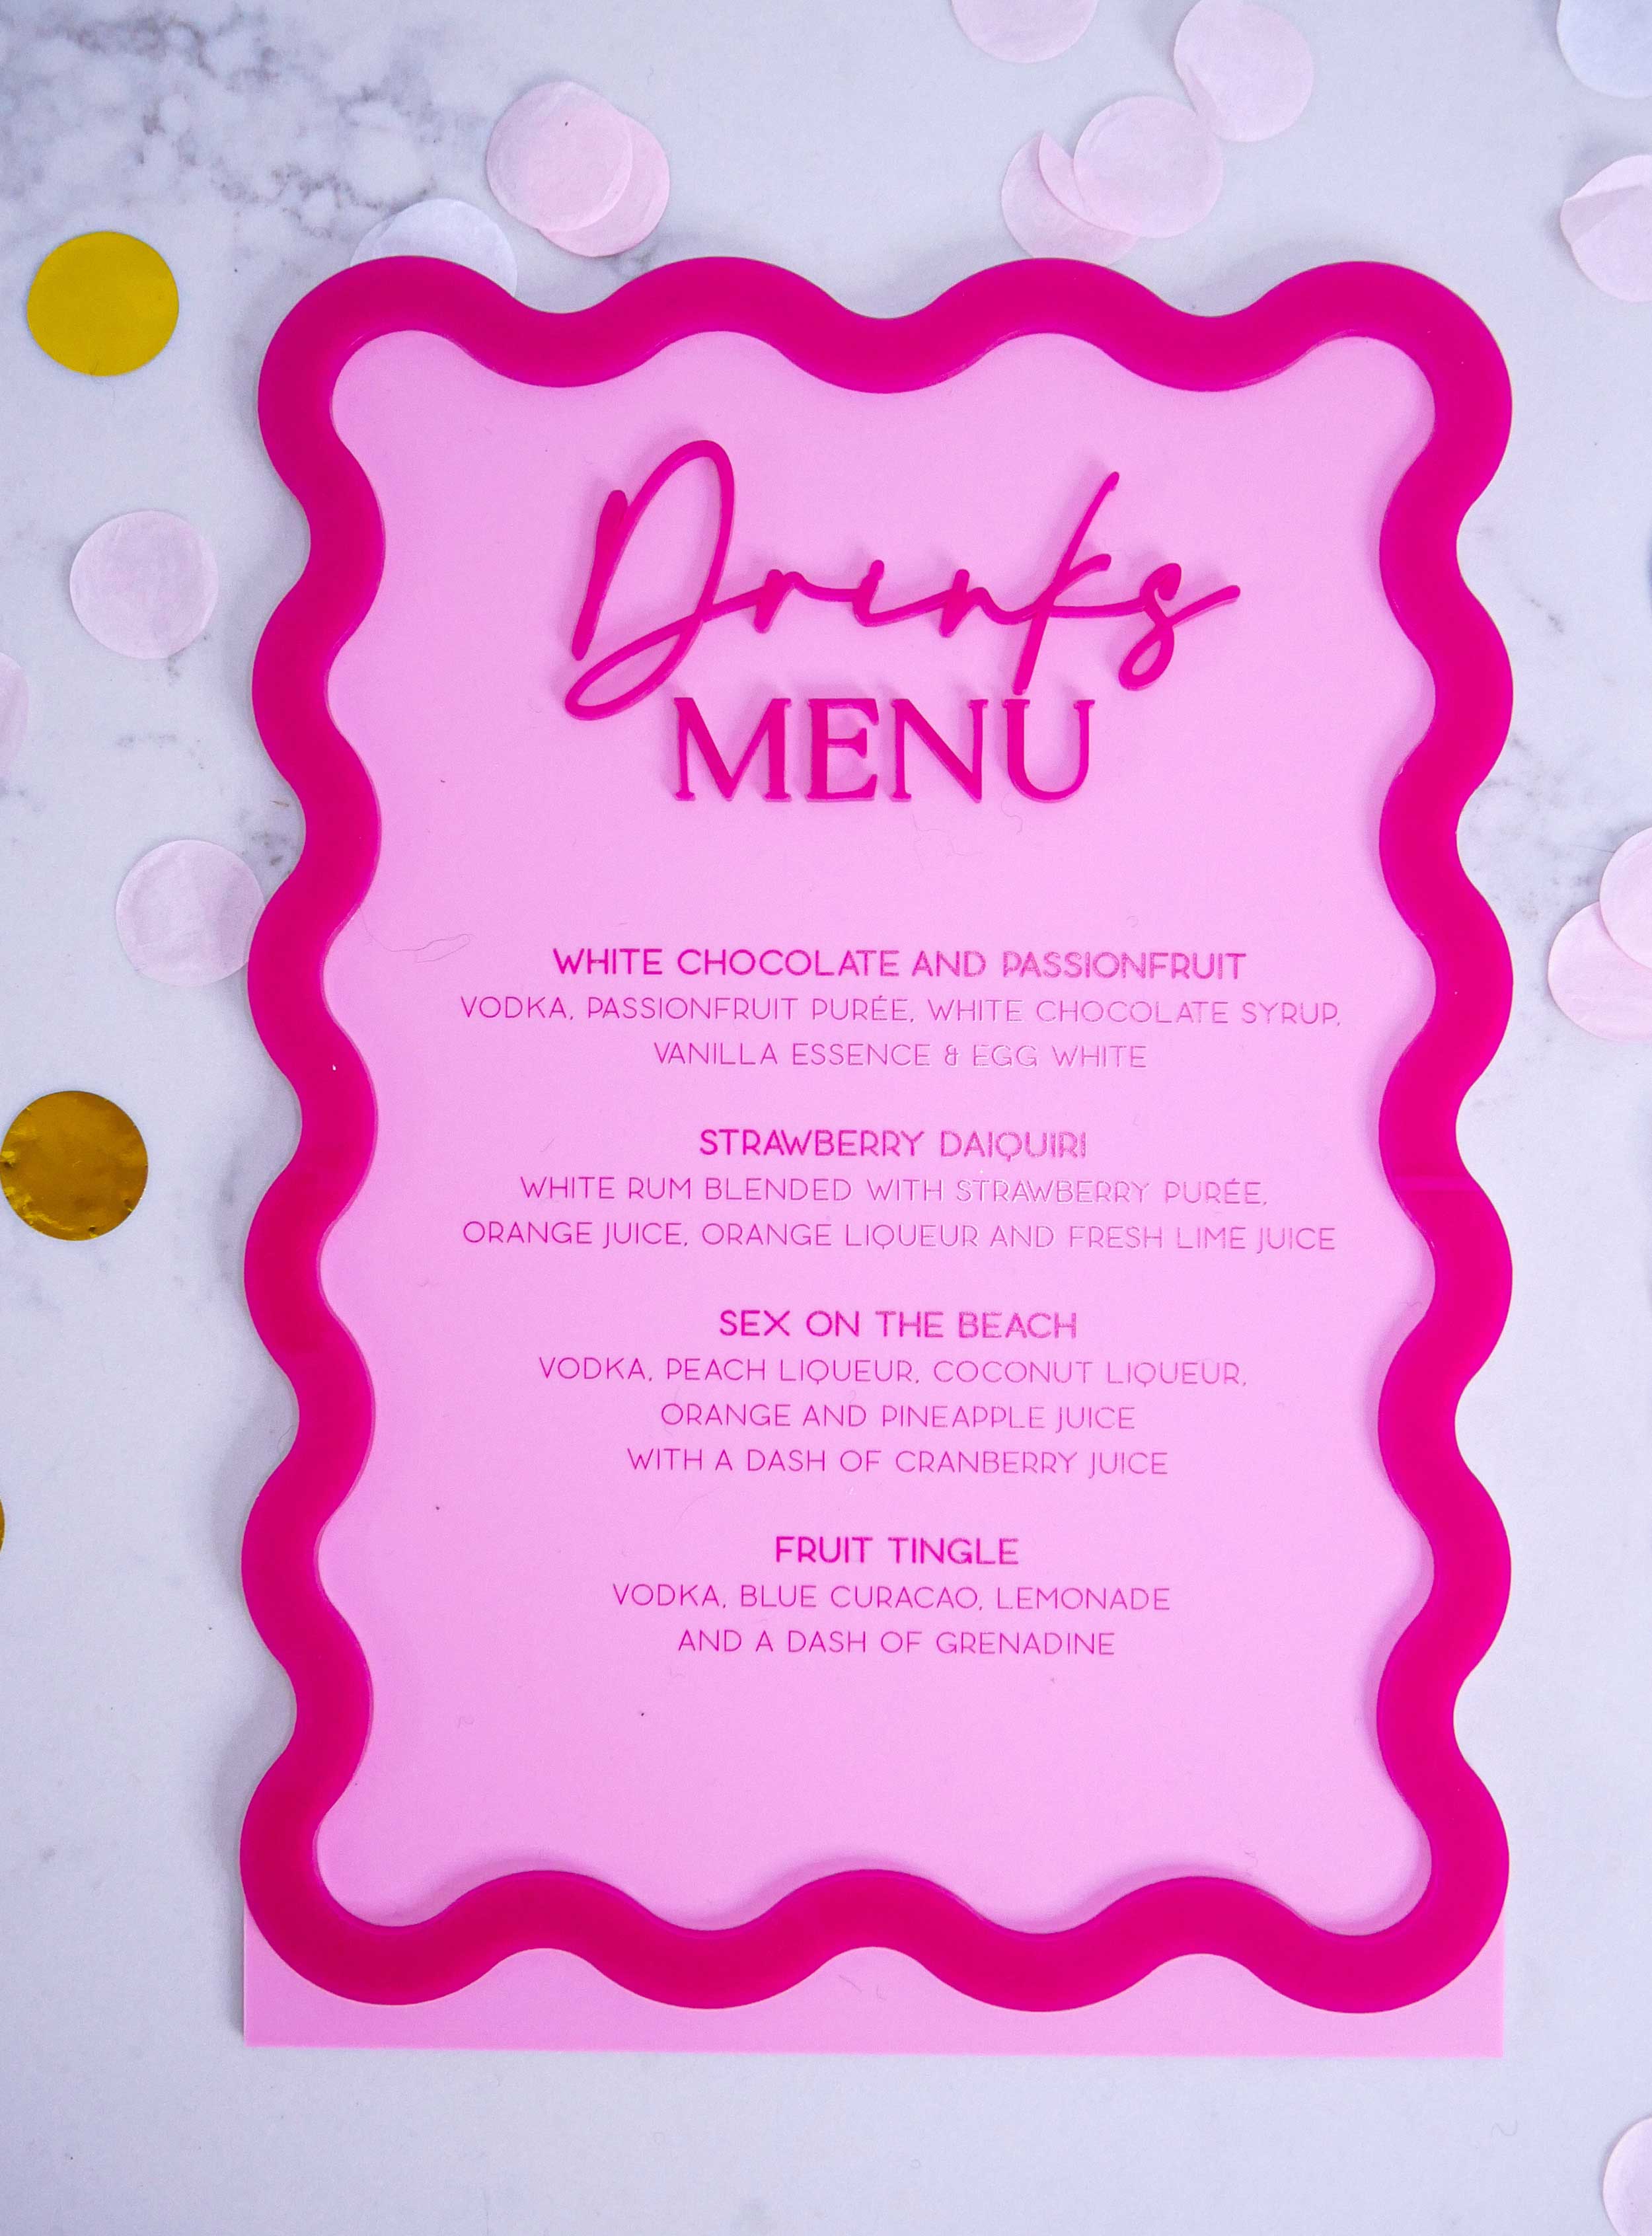 Drinks
MENU
WHITE CHOCOLATE AND PASSIONFRUIT
VODKA, PASSIONFRUIT PURÉE, WHITE CHOCOLATE SYRUP,
VANILLA ESSENCE & EGG WHITE
STRAWBERRY DAIQUIRI
WHITE RUM BLENDED WITH STRAWBERRY PURÉE,
ORANGE JUICE, ORANGE LIQUEUR AND FRESH LIME JUICE
SEX ON THE BEACH
VODKA, PEACH LIQUEUR, COCONUT LIQUEUR,
ORANGE AND PINEAPPLE JUICE
WITH A DASH OF CRANBERRY JUICE
FRUIT TINGLE
VODKA, BLUE CURACAO, LEMONADE
AND A DASH OF GRENADINE